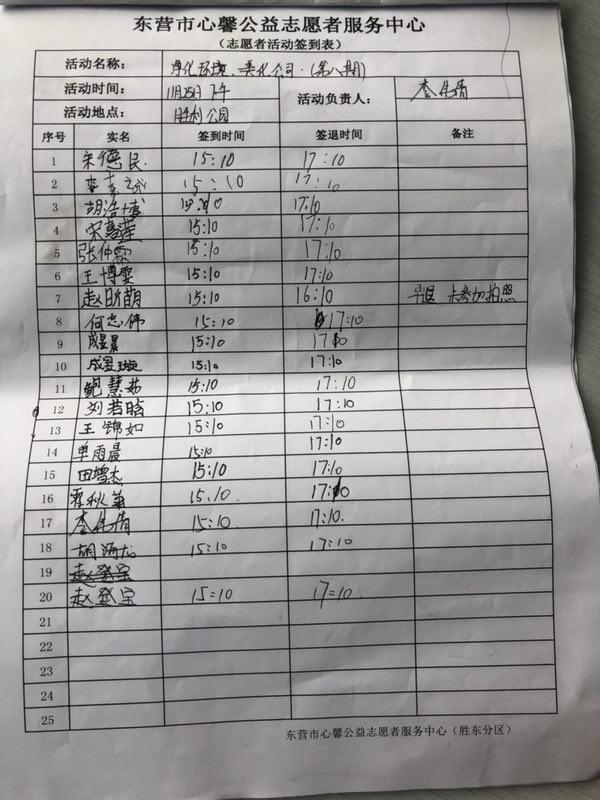 东营市心馨公益志愿者服务中心
（志愿者活动签到表）
活动名称： 净化环境、美化公司·(第八期)
活动时间： 11月25日 下午 活动负责人： 李
活动地点： 胜利公园
序号 实名 签到时间 签退时间 备注
1 宋德民 15:10 17:10
2 李 15:10 17:10
3 胡浩博 15:10 17:10
4 宋 15:10 17:10
5 张仲霖 15:10 17:10
6 王博雯 15:10 17:10
7 赵昕萌 15:10 16:10 早退 未参加拍照
8 何志伟 15:10 17:10
9 成昱晨 15:10 17:10
10 成昱璇 15:10 17:10
11 鲍慧茹 15:10 17:10
12 刘若晗 15:10 17:10
13 王锦如 15:10 17:10
14 单雨晨 15:10 17:10
15 田增杰 15:10 17:10
16 霍秋菊 15:10 17:10
17 李 15:10 17:10.
18 胡 15:10 17:10
19 赵登宝
20 赵登宝 15=10 17=10.
21
22
23
24
25
东营市心馨公益志愿者服务中心（胜东分区）